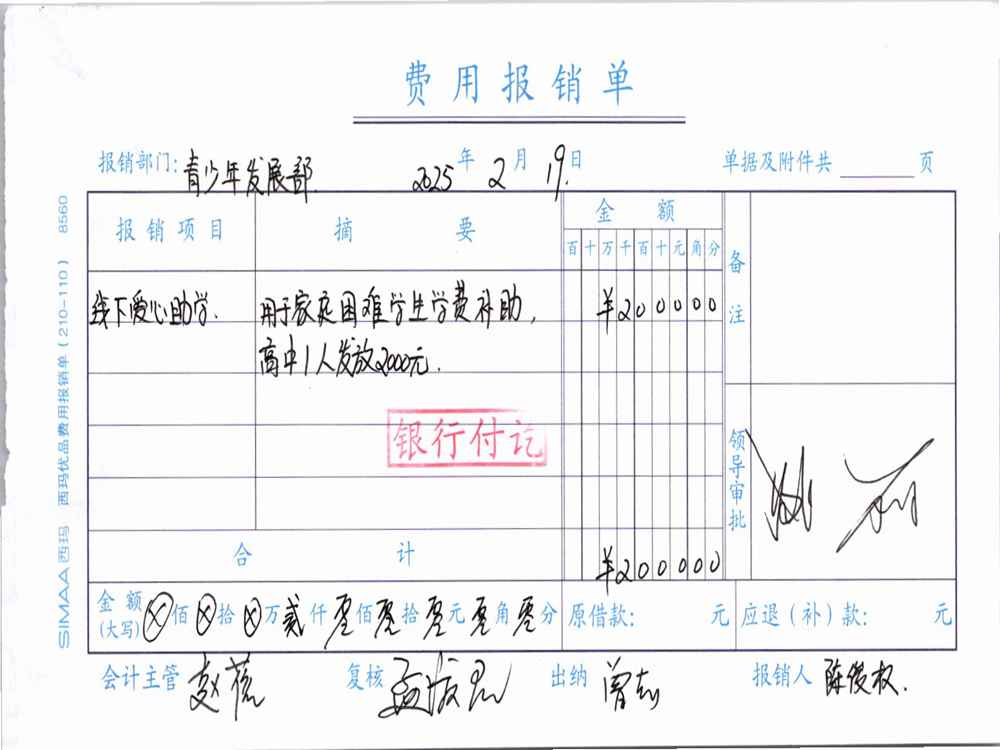 费用报销单
报销部门：青少年发展部. 2025年2月19.日 单据及附件共 页
报销项目 摘要 金额 备注
百十万千百十元角分
线下爱心助学. 用于家庭困难学生学费补助， ¥200000
高中1人发放2000元.
银行付讫
领导审批
合计 ¥200000
金额(大写) ⊗佰⊗拾⊗万贰仟零佰零拾零元零角零分 原借款： 元 应退（补）款： 元
会计主管 赵 复核 孟 出纳 曾志 报销人 陈俊权.
SIMAA西玛 西玛优品费用报销单（210-110） 8560